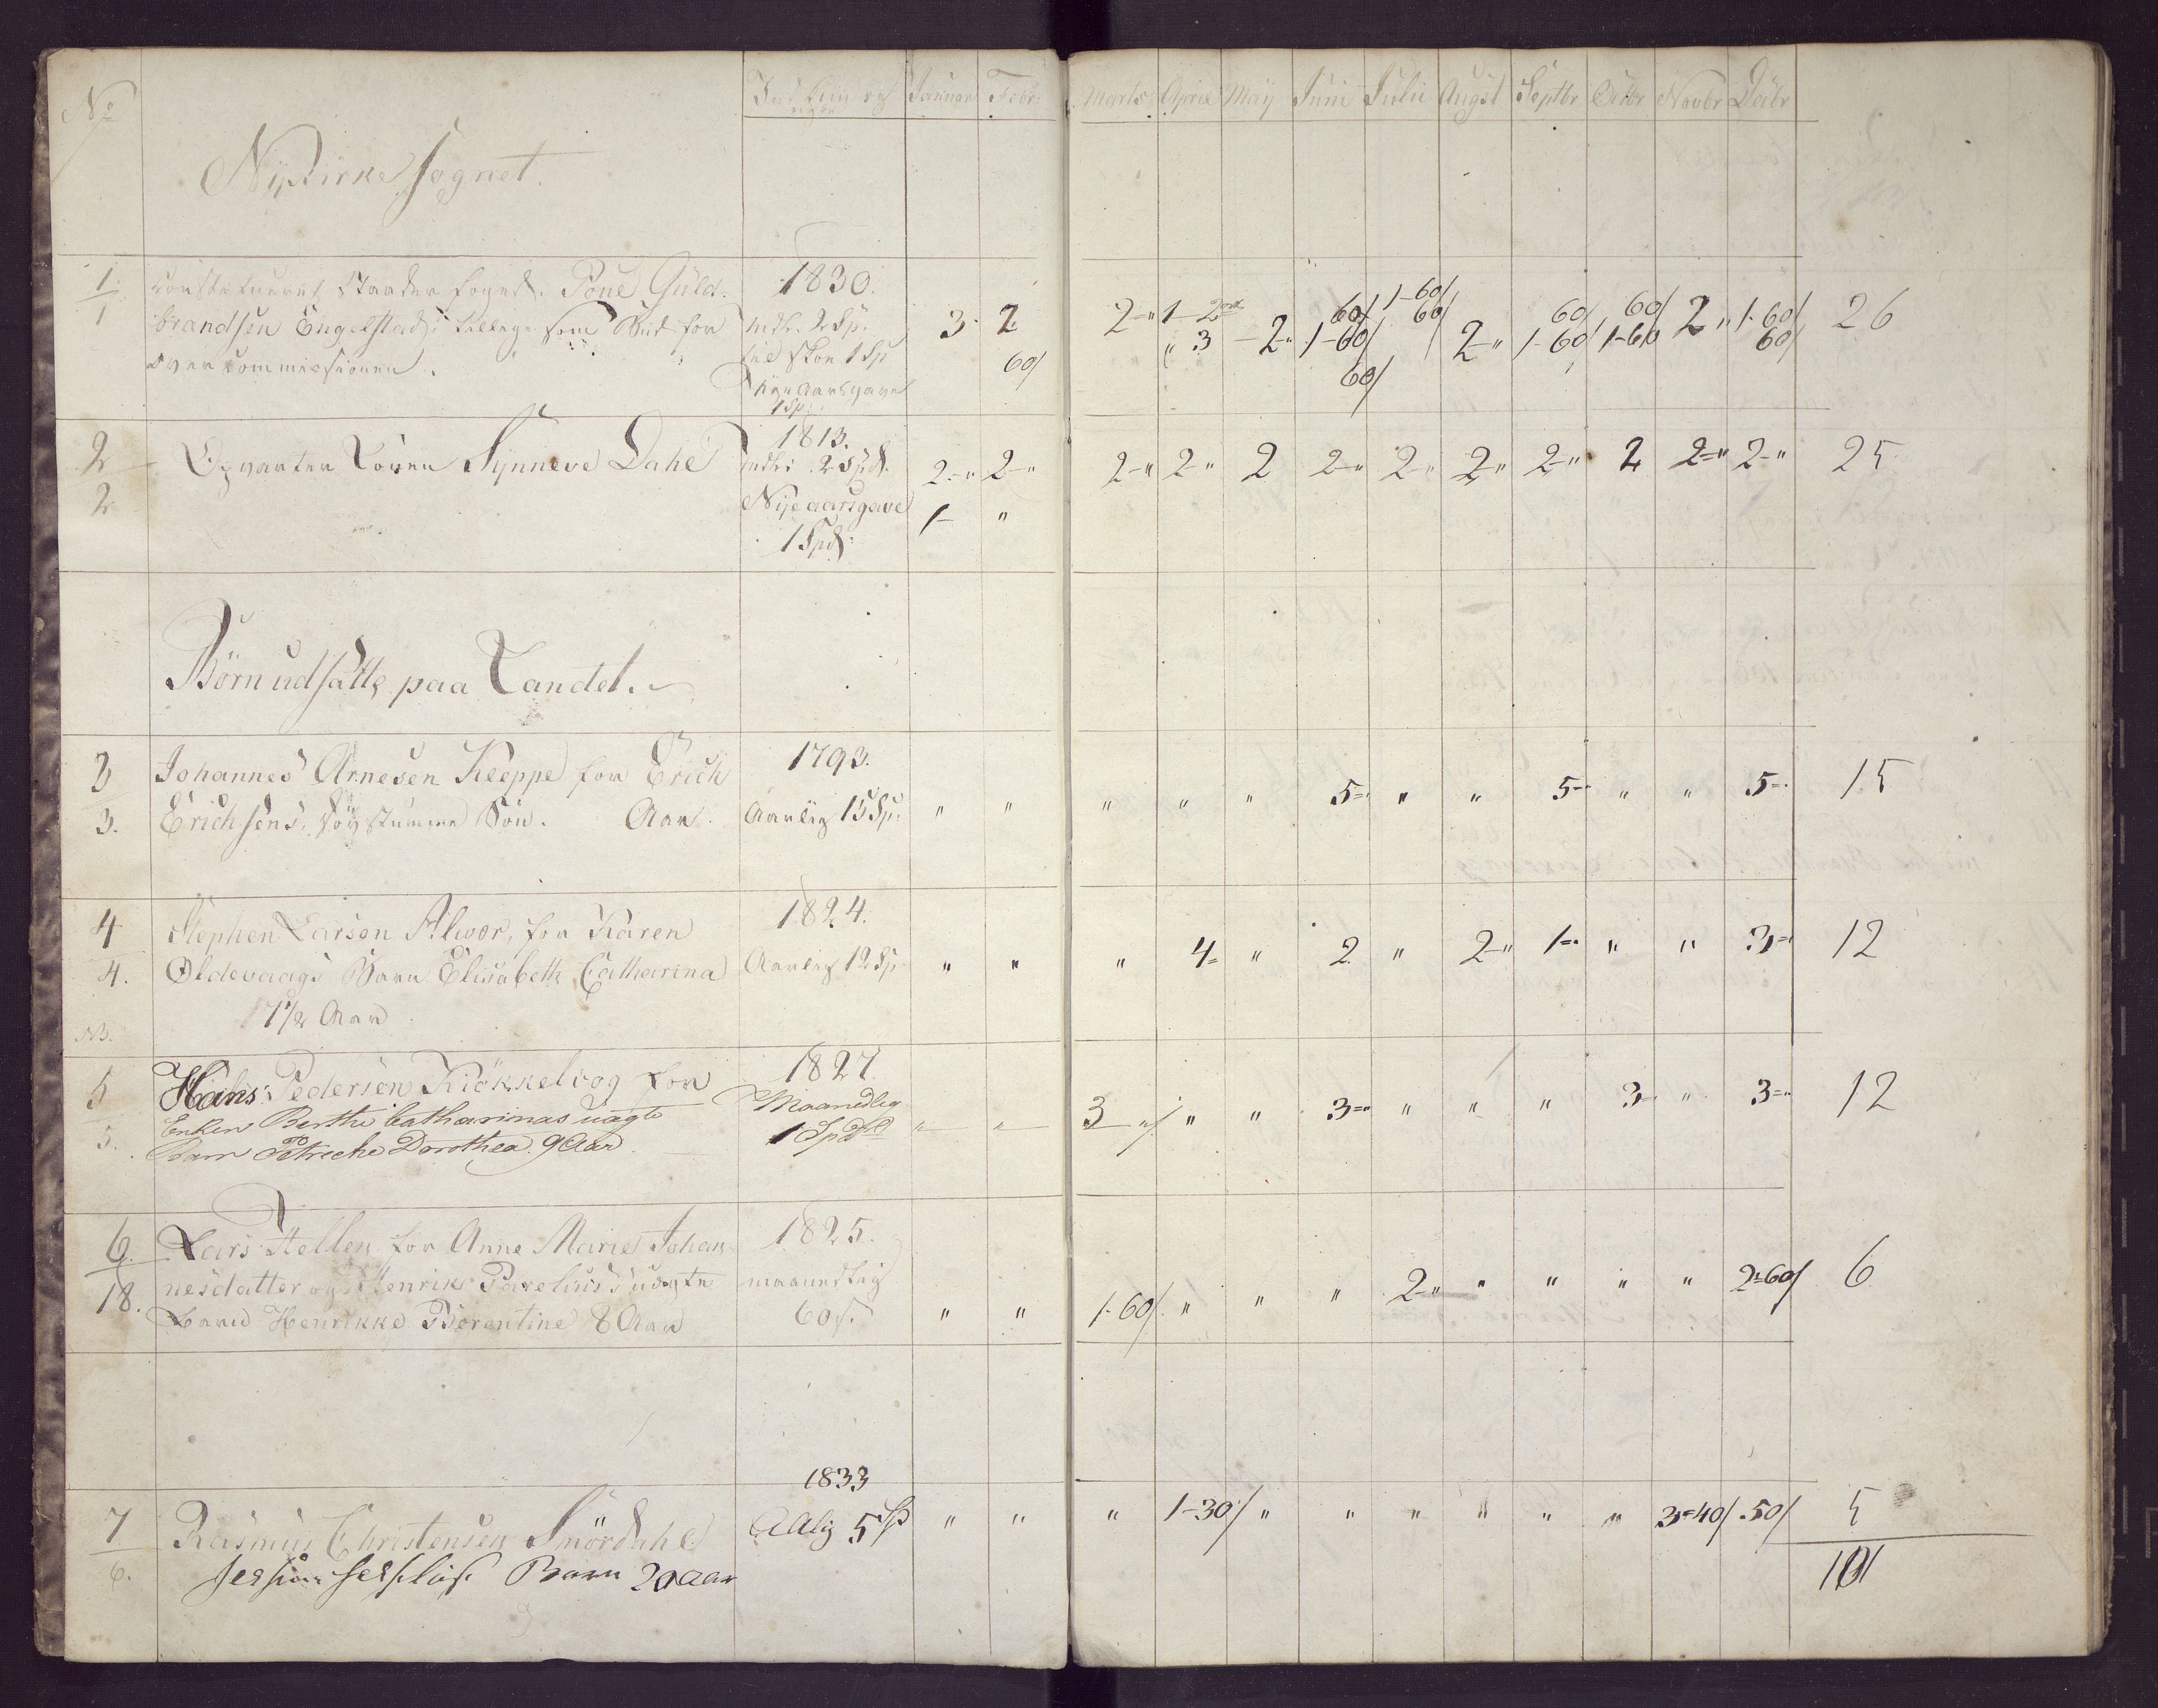 No Januar Febr: Marts April Maij Juni Julii Augst Septbr Octbr Novbr Decbr
NyKirke Sognet.
1 1830.
1 brandsen Engelstad, tillige som Bud for Indtr. 2 Sp. 3 2 2 " 1 2 60/ 1-60/ 60/ 60/ 2 " 1-60/ 26
over Commissionen. til skoe 1 Sp 60/ " 3 2 " 1-60/ 60/ 2 " 1-60/ 1-60 60/
Nye aarsgave 60/
1 Sp.
2 1813.
Opvarter Konen Synneve Dahl 2 Spd. 2-" 2-" 2-" 2-" 2 2-" 2-" 2-" 2-" 2 2-" 2-" 25
2 Nyeaarsgave 1- "
1 Spd:
Börn udsatte paa Landet.
3 Johannes Arnesen Kleppe for Erich 1793.
3. Erichsens, döv stumme Sön. Aar. Aarlig 15 Sp. " " " " " 5-" " " 5-" " " 5-" 15
4 Stephen Larsen Alvor, for Karen 1824.
4. Oldevaags Barn Elisabeth Catharina Aarlig 12 Sp " " " 4- " 2 " 2-" 1-" " " 3-" 12
7 1/2 Aar
NB.
5 Hans Pedersen Kiökkelvog for 1827.
Enken Berthe Catharinas uægte Maanedlig
5. Barn Petreche Dorothea. 9 Aar 1 Spd " " 3 " " " 3-" " " " 3- " 3-" 12
6. Lars Hellen for Anne Marie Johan 1825.
18. nesdatter og Henrik Parelius's uægte maanedlig
Barn Henrikke Börentine 8 Aar 60 s. " " 1-60/ " " " 2-" " " " " 2-60/ 6
1833
7 Rasmus Christensen Snördahl AAlig 5 Sp " " " 1-30/ " " " " " " 3-40/ .50/ 5
6. Barn 20 aar 101